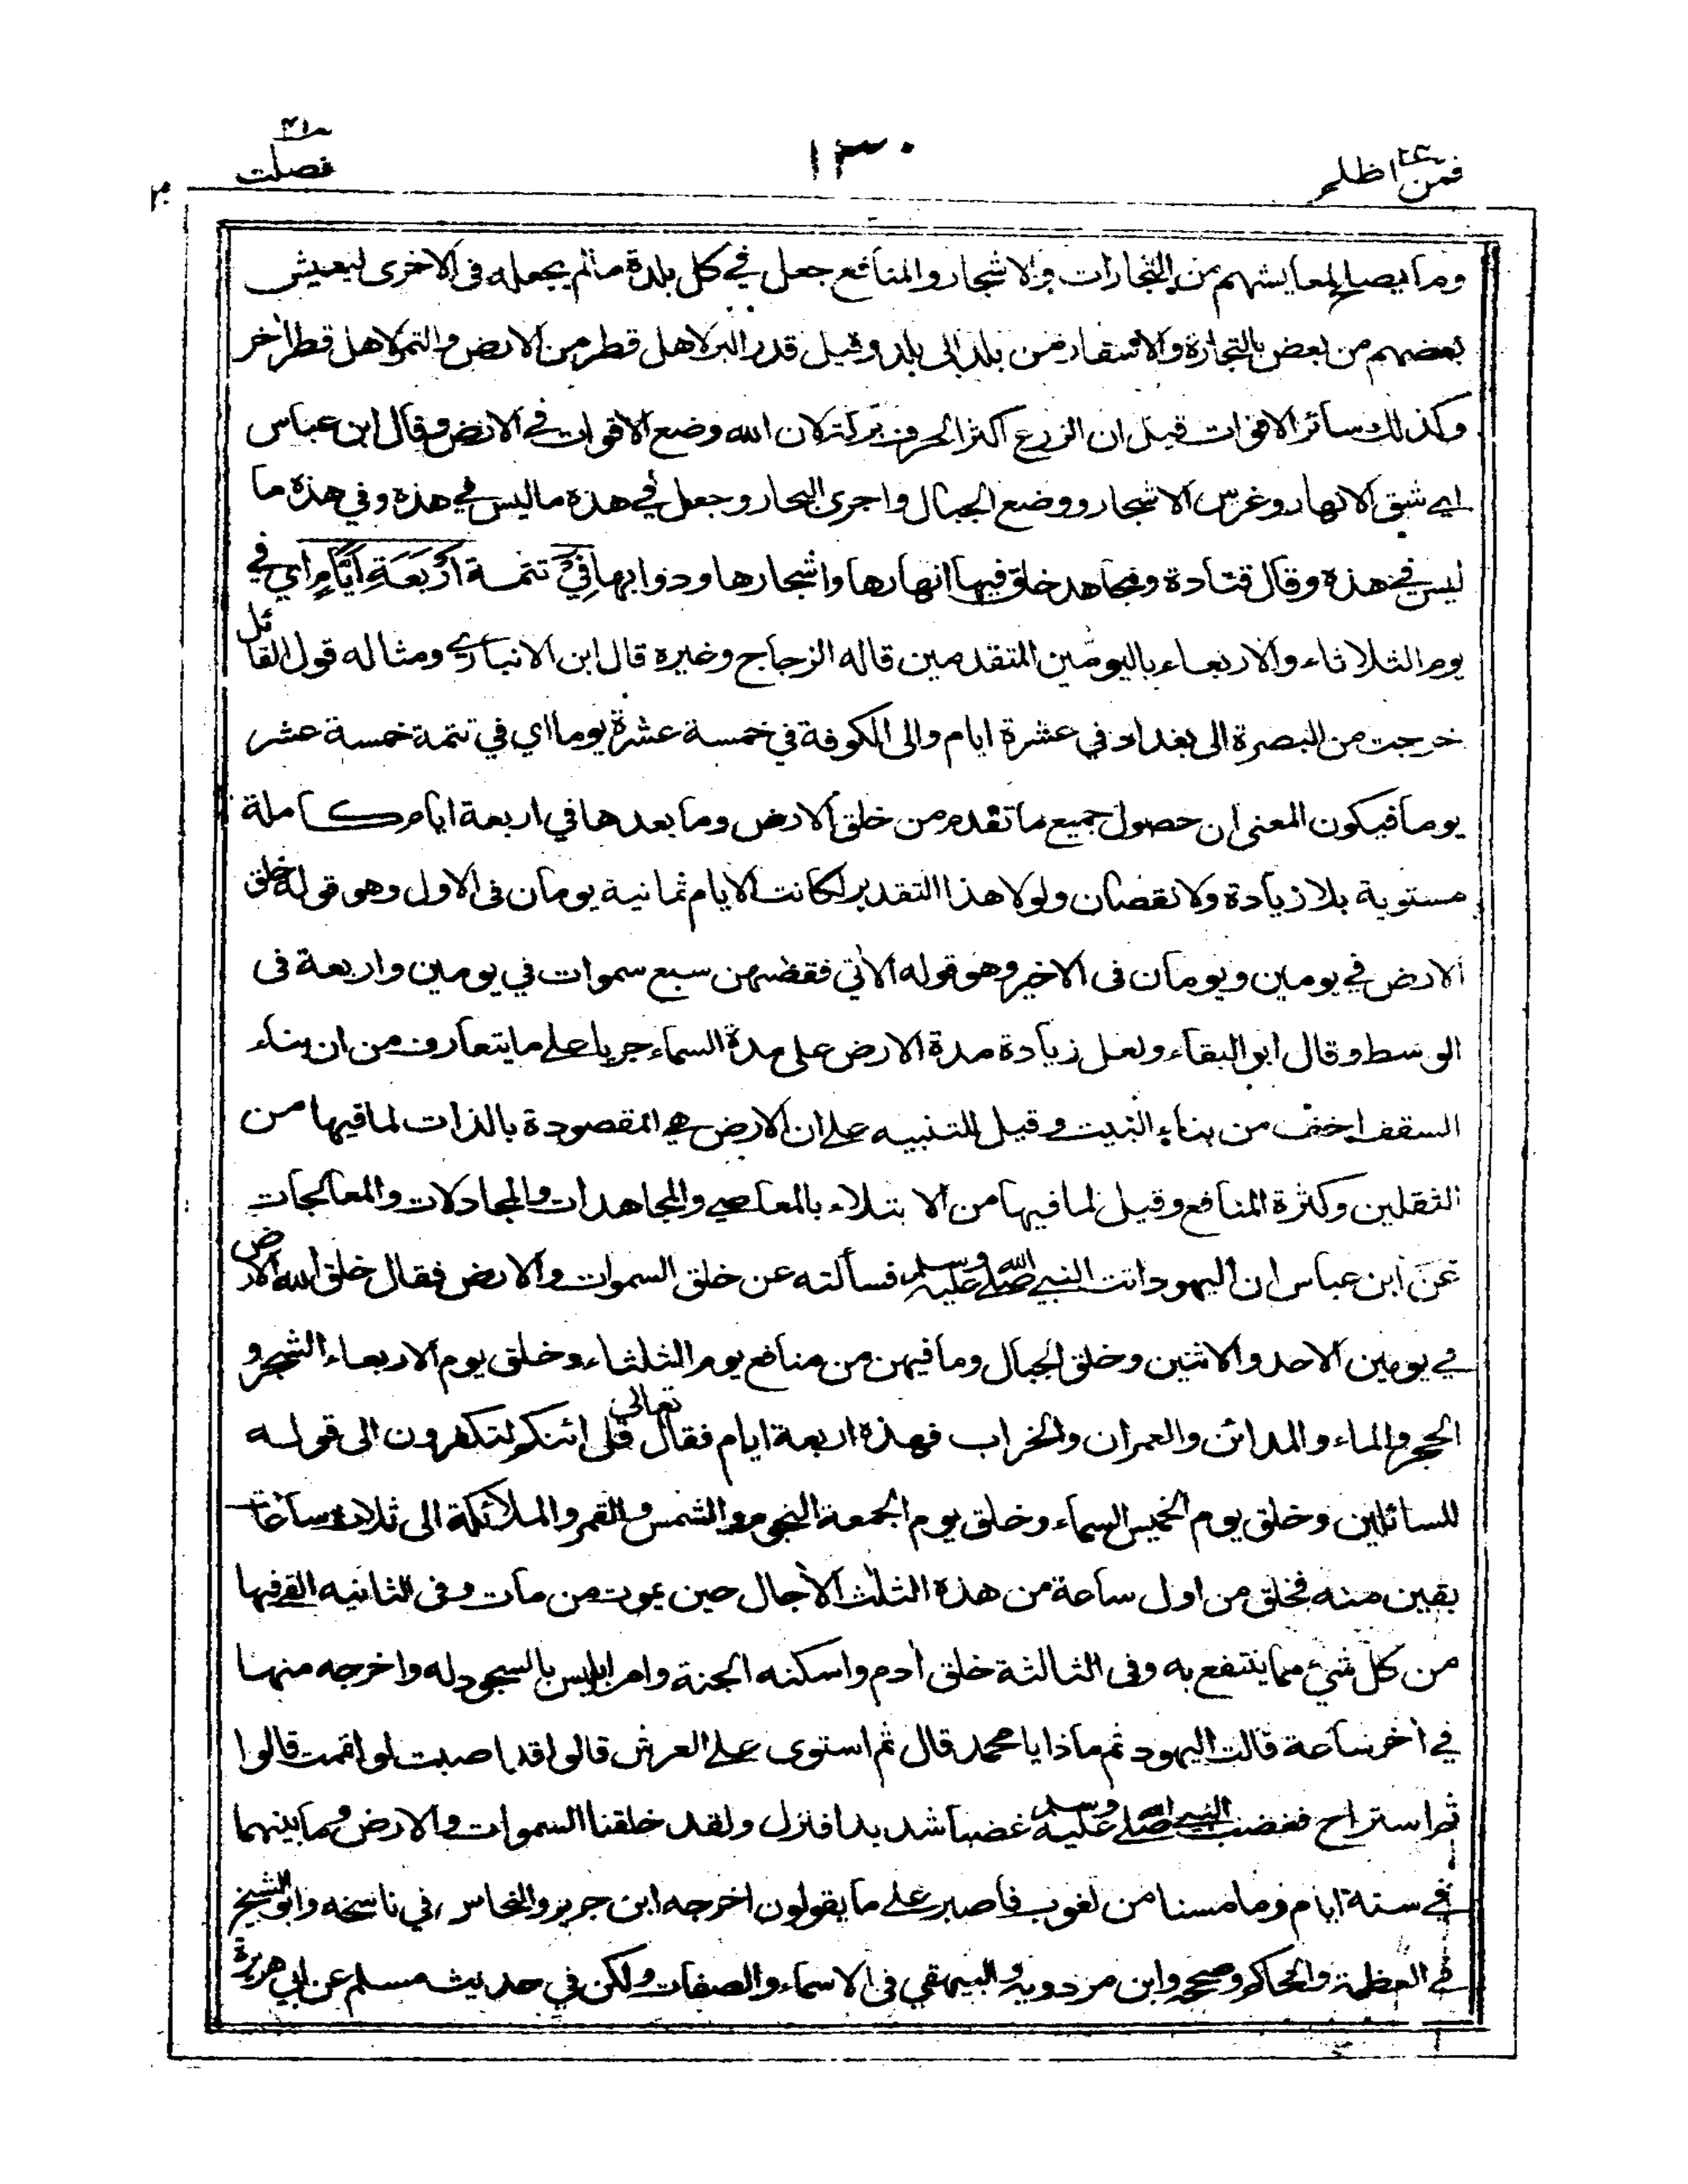 فمن اظلم ٢٤
١٣٠
فصلت ٤١
وما يصلح لمعايشهم من التجارات والاشجار والمنافع جعل في كل بلدة مالم يجعله فى الاخرى ليعيش
بعضهم من بعض بالتجارة والاسفار من بلد الى بلد وقيل قدر البر لاهل قطر من الارض والتمر لاهل قطر أخر
وكذلك سائر الاقوات قيل ان الزرع اكثر الحرف بركة لان الله وضع الاقوات في الارض وقال ابن عباس
اي شق الانهار وغرس الاشجار ووضع الجبال واجرى البحار وجعل في هذة ما ليس في هذه وفي هذة ما
ليس في هذه وقال قتادة ومجاهد خلق فيها انهارها واشجارها ودوابها فِيْ تتمة اَرْبَعَةِ اَيَّامٍ اي في
يوم الثلاثاء والاربعاء باليومين المتقدمين قاله الزجاج وغيره قال ابن الانباري ومثاله قول القائل
خرجت من البصرة الى بغداد في عشرة ايام والى الكوفة في خمسة عشرة يوما اي في تتمة خمسة عشر
يوما فيكون المعنى ان حصول جميع ما تقدم من خلق الارض وما بعدها في اربعة ايام كاملة
مستوية بلا زيادة ولا نقصان ولولا هذا التقدير لكانت الايام ثمانية يومان فى الاول وهو قوله خلق
الارض في يومين ويومان فى الاخير وهو قوله الأتي فقضهن سبع سموات في يومين واربعة فى
الوسط وقال ابو البقاء ولعل زيادة مدة الارض على مدة السماء جريا على ما يتعارف من ان بناء
السقف اخف من بناء البيت وقيل للتنبيه على ان الارض هي المقصودة بالذات لما فيها من
الثقلين وكثرة المنافع وقيل لما فيها من الابتلاء بالمعاصي والمجاهدات والمجادلات والمعالجات
عن ابن عباس ان اليهود اتت النبي صلى الله عليه وسلم فسألته عن خلق السموات والارض فقال خلق الله الارض
في يومين الاحد والاثنين وخلق الجبال وما فيهن من منافع يوم الثلثاء وخلق يوم الاربعاء الشجر و
الحجر والماء والمدائن والعمران والخراب فهذة اربعة ايام فقال تعالى قل ائنكم لتكفرون الى قوله
للسائلين وخلق يوم الخميس السماء وخلق يوم الجمعة النجوم والشمس والقمر والملائكة الى ثلاث ساعات
بقين منه فخلق من اول ساعة من هذة الثلث الأجال حين يموت من مات وفى الثانيه القى فيها
من كل شئ مما ينتفع به وفى الثالثة خلق أدم واسكنه الجنة وامر ابليس بالسجود له واخرجه منها
في أخر ساعة قالت اليهود ثم ماذا يا محمد قال ثم استوى على العرش قالوا قد اصبت لو اتممت قالوا
ثم استراح فغضب النبي صلى الله عليه وسلم غضبا شديدا فنزل ولقد خلقنا السموات والارض وما بينهما
في ستة ايام وما مسنا من لغوب فاصبر على ما يقولون اخرجه ابن جرير والنحاس في ناسخه وابو الشيخ
في العظمة والحاكم وصححه وابن مردويه والبيهقي فى الاسماء والصفات ولكن في حديث مسلم عن ابي هريرة